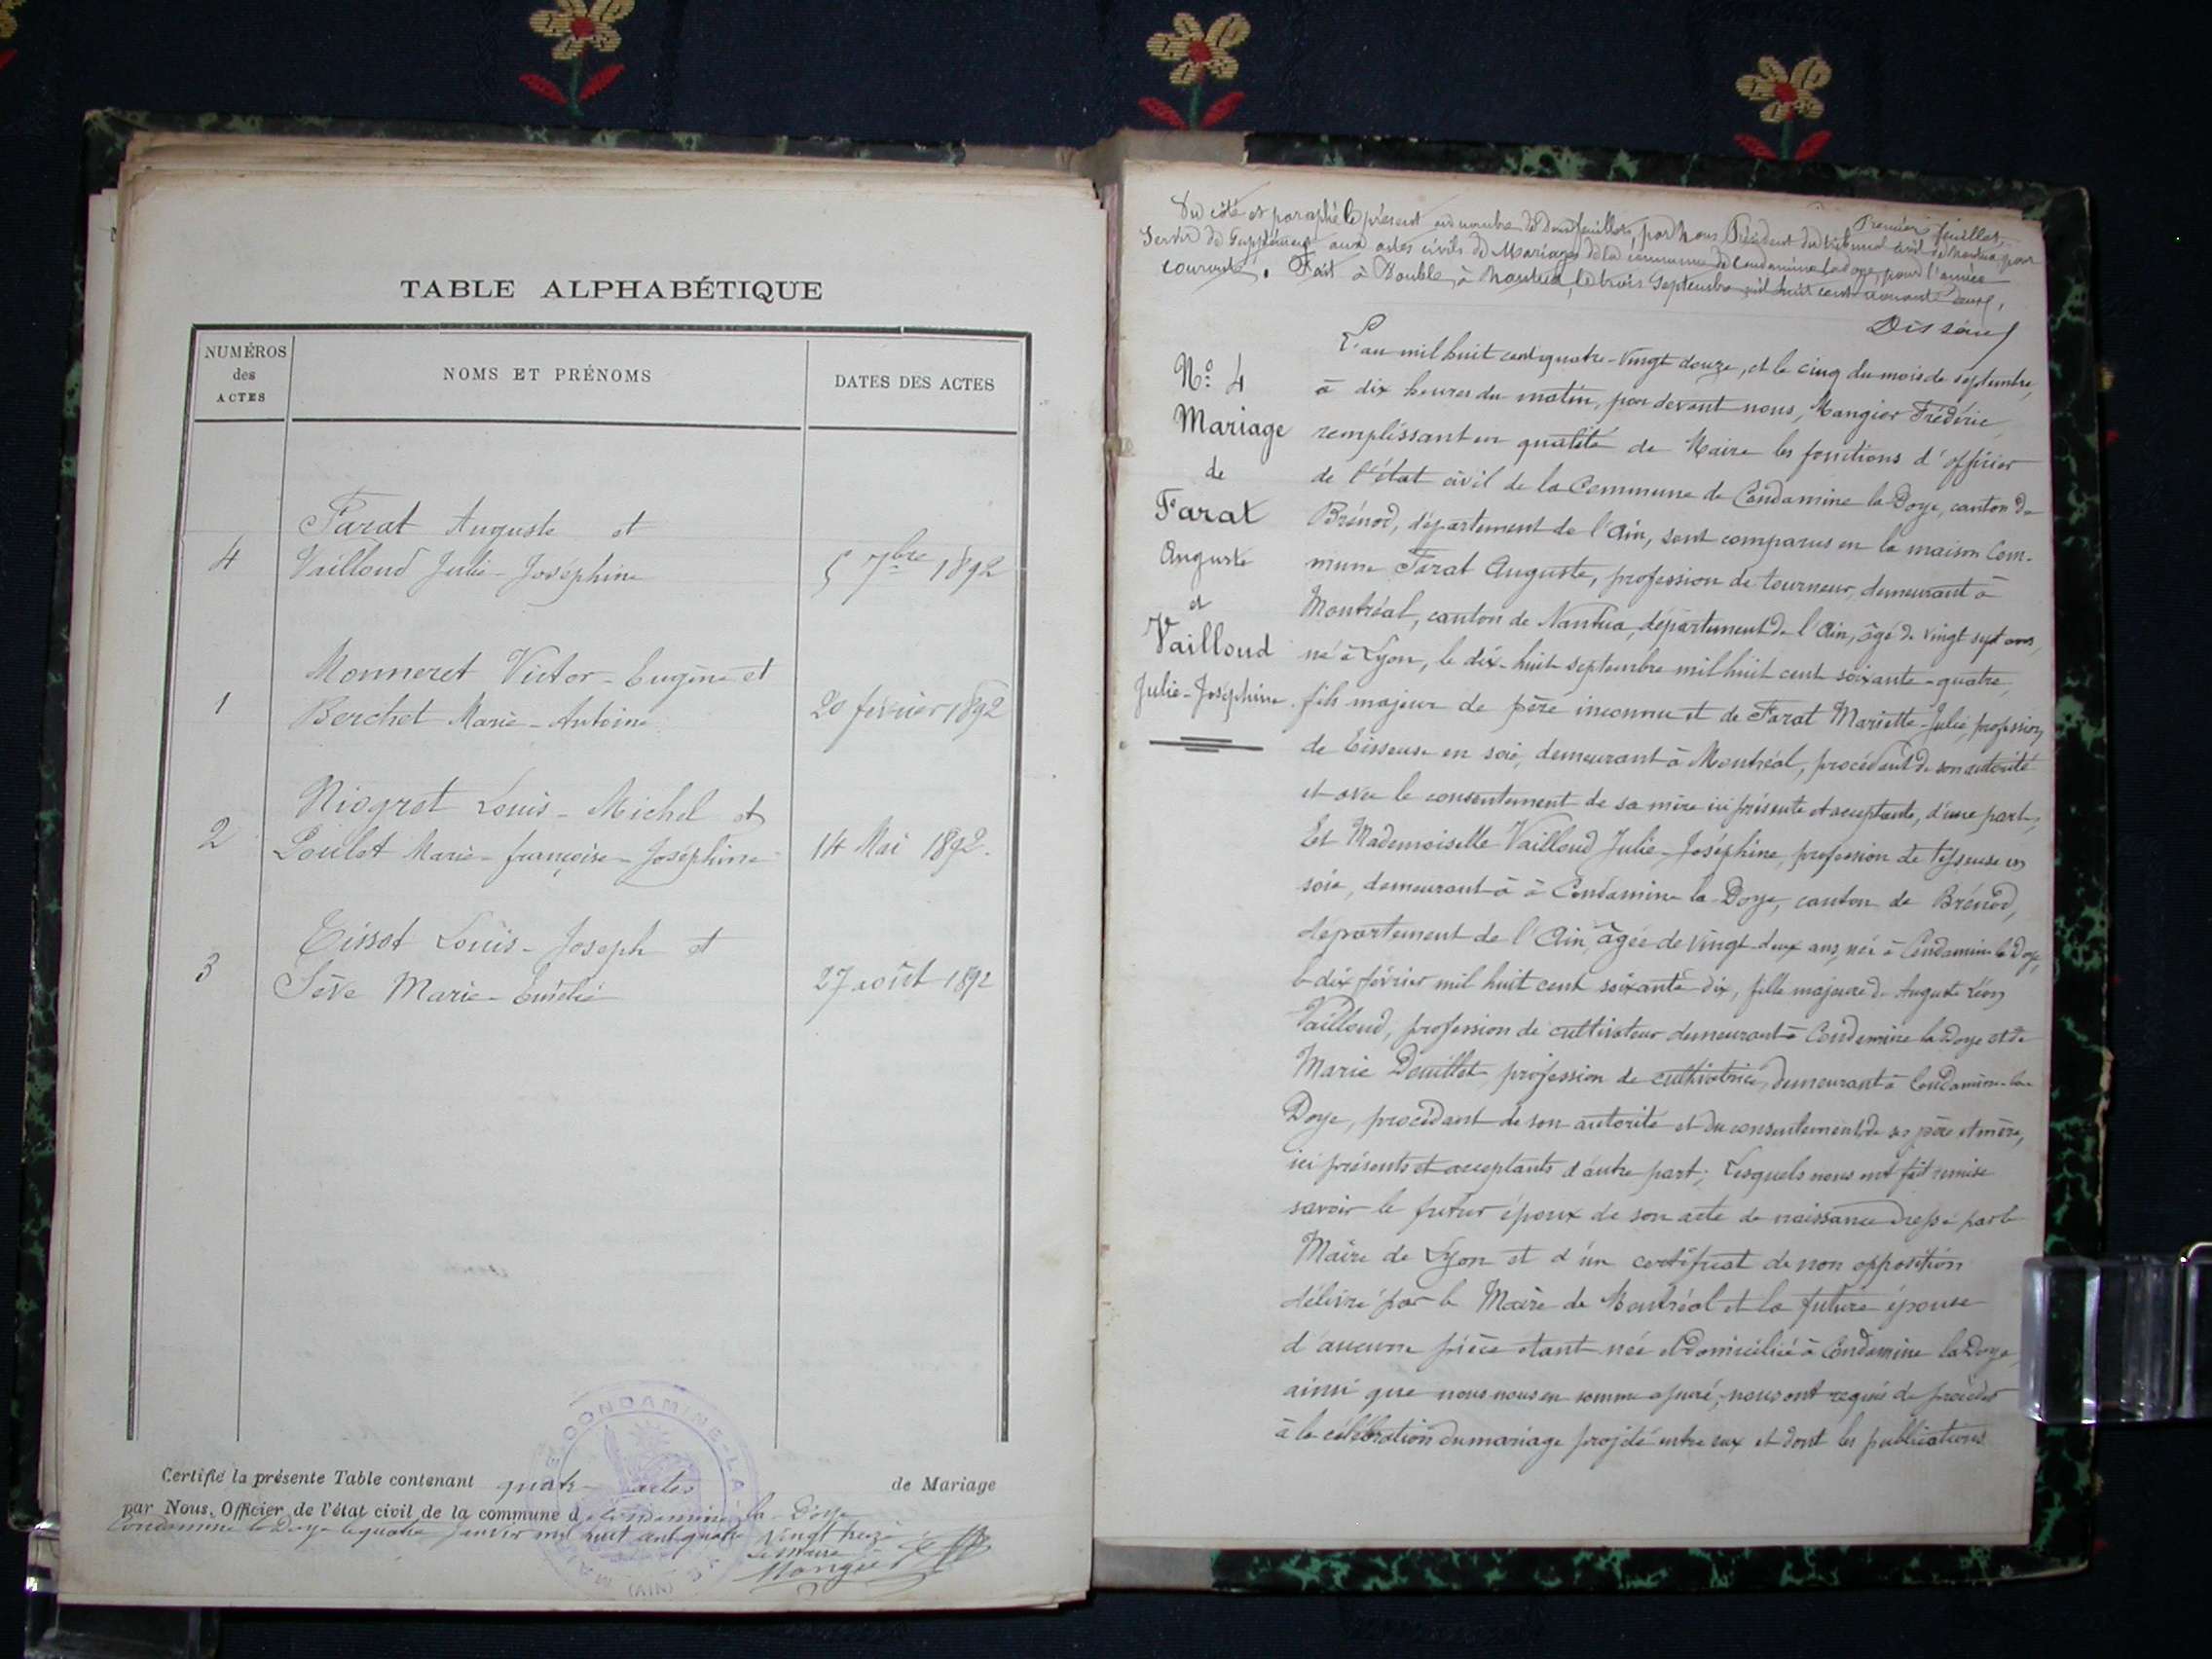 TABLE ALPHABÉTIQUE
NUMÉROS
des
ACTES
NOMS ET PRÉNOMS
DATES DES ACTES
Farat Auguste et
4 Vailloud Julie-Joséphine 5 7bre 1892
Monneret Victor-Eugène et
1 Berchet Marie-Antoine 20 février 1892
Niogret Louis-Michel et
2 Marie-françoise-Joséphine 14 Mai 1892.
Tissot Louis-Joseph et
3 Sève Marie-Emélie 27 août 1892
Certifié la présente Table contenant quatre actes de Mariage
par Nous, Officier de l'état civil de la commune de Condamine la Doye
Condamine la Doye le quatre Janvier mil huit cent quatre vingt treize
Le Maire
Mangier
DE CONDAMINE-LA-
MAI
(AIN)
Premier feuillet
Vu coté et paraphé le présent au nombre de deux feuillets, par Nous Président du tribunal civil de Nantua pour
Servir de Supplément aux actes civils de Mariages de la commune de Condamine la doye, pour l'année
courante. Fait à Double, à Nantua, le trois Septembre mil huit cent nonante deux,
N.º 4
Mariage
de
Farat
Auguste
et
Vailloud
Julie-Joséphine
L'an mil huit cent quatre-vingt douze, et le cinq du mois de septembre,
à dix heures du matin, par devant nous, Mangier Frédéric
remplissant en qualité de Maire les fonctions d'officier
de l'état civil de la Commune de Condamine la Doye, canton de
Brénod, département de l'Ain, sont comparus en la maison Com-
mune Farat Auguste, profession de tourneur, demeurant à
Montréal, canton de Nantua, département de l'Ain, âgé de vingt sept ans,
né à Lyon, le dix-huit septembre mil huit cent soixante-quatre,
fils majeur de père inconnu et de Farat Mariette-Julie, profession
de Tisseuse en soie, demeurant à Montréal, procédant de son autorité
et avec le consentement de sa mère ici présente et acceptante, d'une part,
Et Mademoiselle Vailloud Julie-Joséphine, profession de tisseuse en
soie, demeurant à à Condamine la Doye, canton de Brénod,
département de l'Ain, âgée de vingt deux ans, née à Condamine la Doye,
le dix février mil huit cent soixante-dix, fille majeure de Auguste Léon
Vailloud, profession de cultivateur demeurant à Condamine la Doye et de
Marie Douillet profession de cultivatrice, demeurant à Condamine-la-
Doye, procédant de son autorité et du consentement de ses père et mère,
ici présents et acceptants d'autre part; Lesquels nous ont fait remise
savoir le futur époux de son acte de naissance dressé par le
Maire de Lyon et d'un certificat de non opposition
délivré par le Maire de Montréal et la future épouse
d'aucune pièce étant née et domiciliée à Condamine la Doye,
ainsi que nous nous en somme assuré, nous ont requis de procéder
à la célébration du mariage projeté entre eux et dont les publications